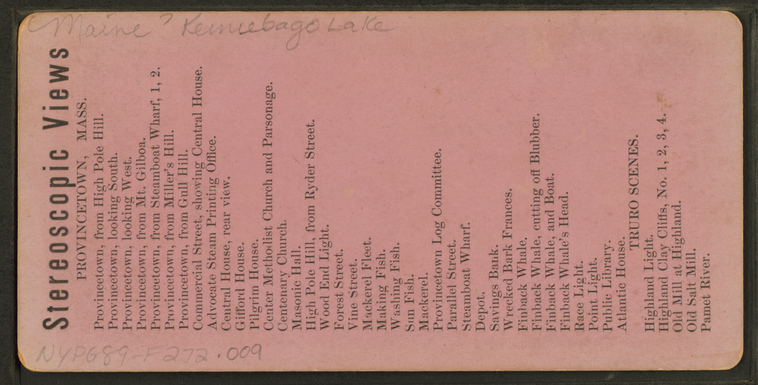 Maine? Kennebago Lake
Stereoscopic Views
PROVINCETOWN, MASS.
Provincetown, from High Pole Hill.
Provincetown, looking South.
Provincetown, looking West.
Provincetown, from Mt. Gilboa.
Provincetown, from Steamboat Wharf, 1, 2.
Provincetown, from Miller's Hill.
Provincetown, from Gull Hill.
Commercial Street, showing Central House.
Advocate Steam Printing Office.
Central House, rear view.
Gifford House.
Pilgrim House.
Center Methodist Church and Parsonage.
Centenary Church.
Masonic Hall.
High Pole Hill, from Ryder Street.
Wood End Light.
Forest Street.
Vine Street.
Mackerel Fleet.
Making Fish.
Washing Fish.
Sun Fish.
Mackerel.
Provincetown Log Committee.
Parallel Street.
Steamboat Wharf.
Depot.
Savings Bank.
Wrecked Bark Frances.
Finback Whale.
Finback Whale, cutting off Blubber.
Finback Whale, and Boat.
Finback Whale's Head.
Race Light.
Point Light.
Public Library.
Atlantic House.
TRURO SCENES.
Highland Light.
Highland Clay Cliffs, No. 1, 2, 3, 4.
Old Mill at Highland.
Old Salt Mill.
Pamet River.
NYPG89-F272.009